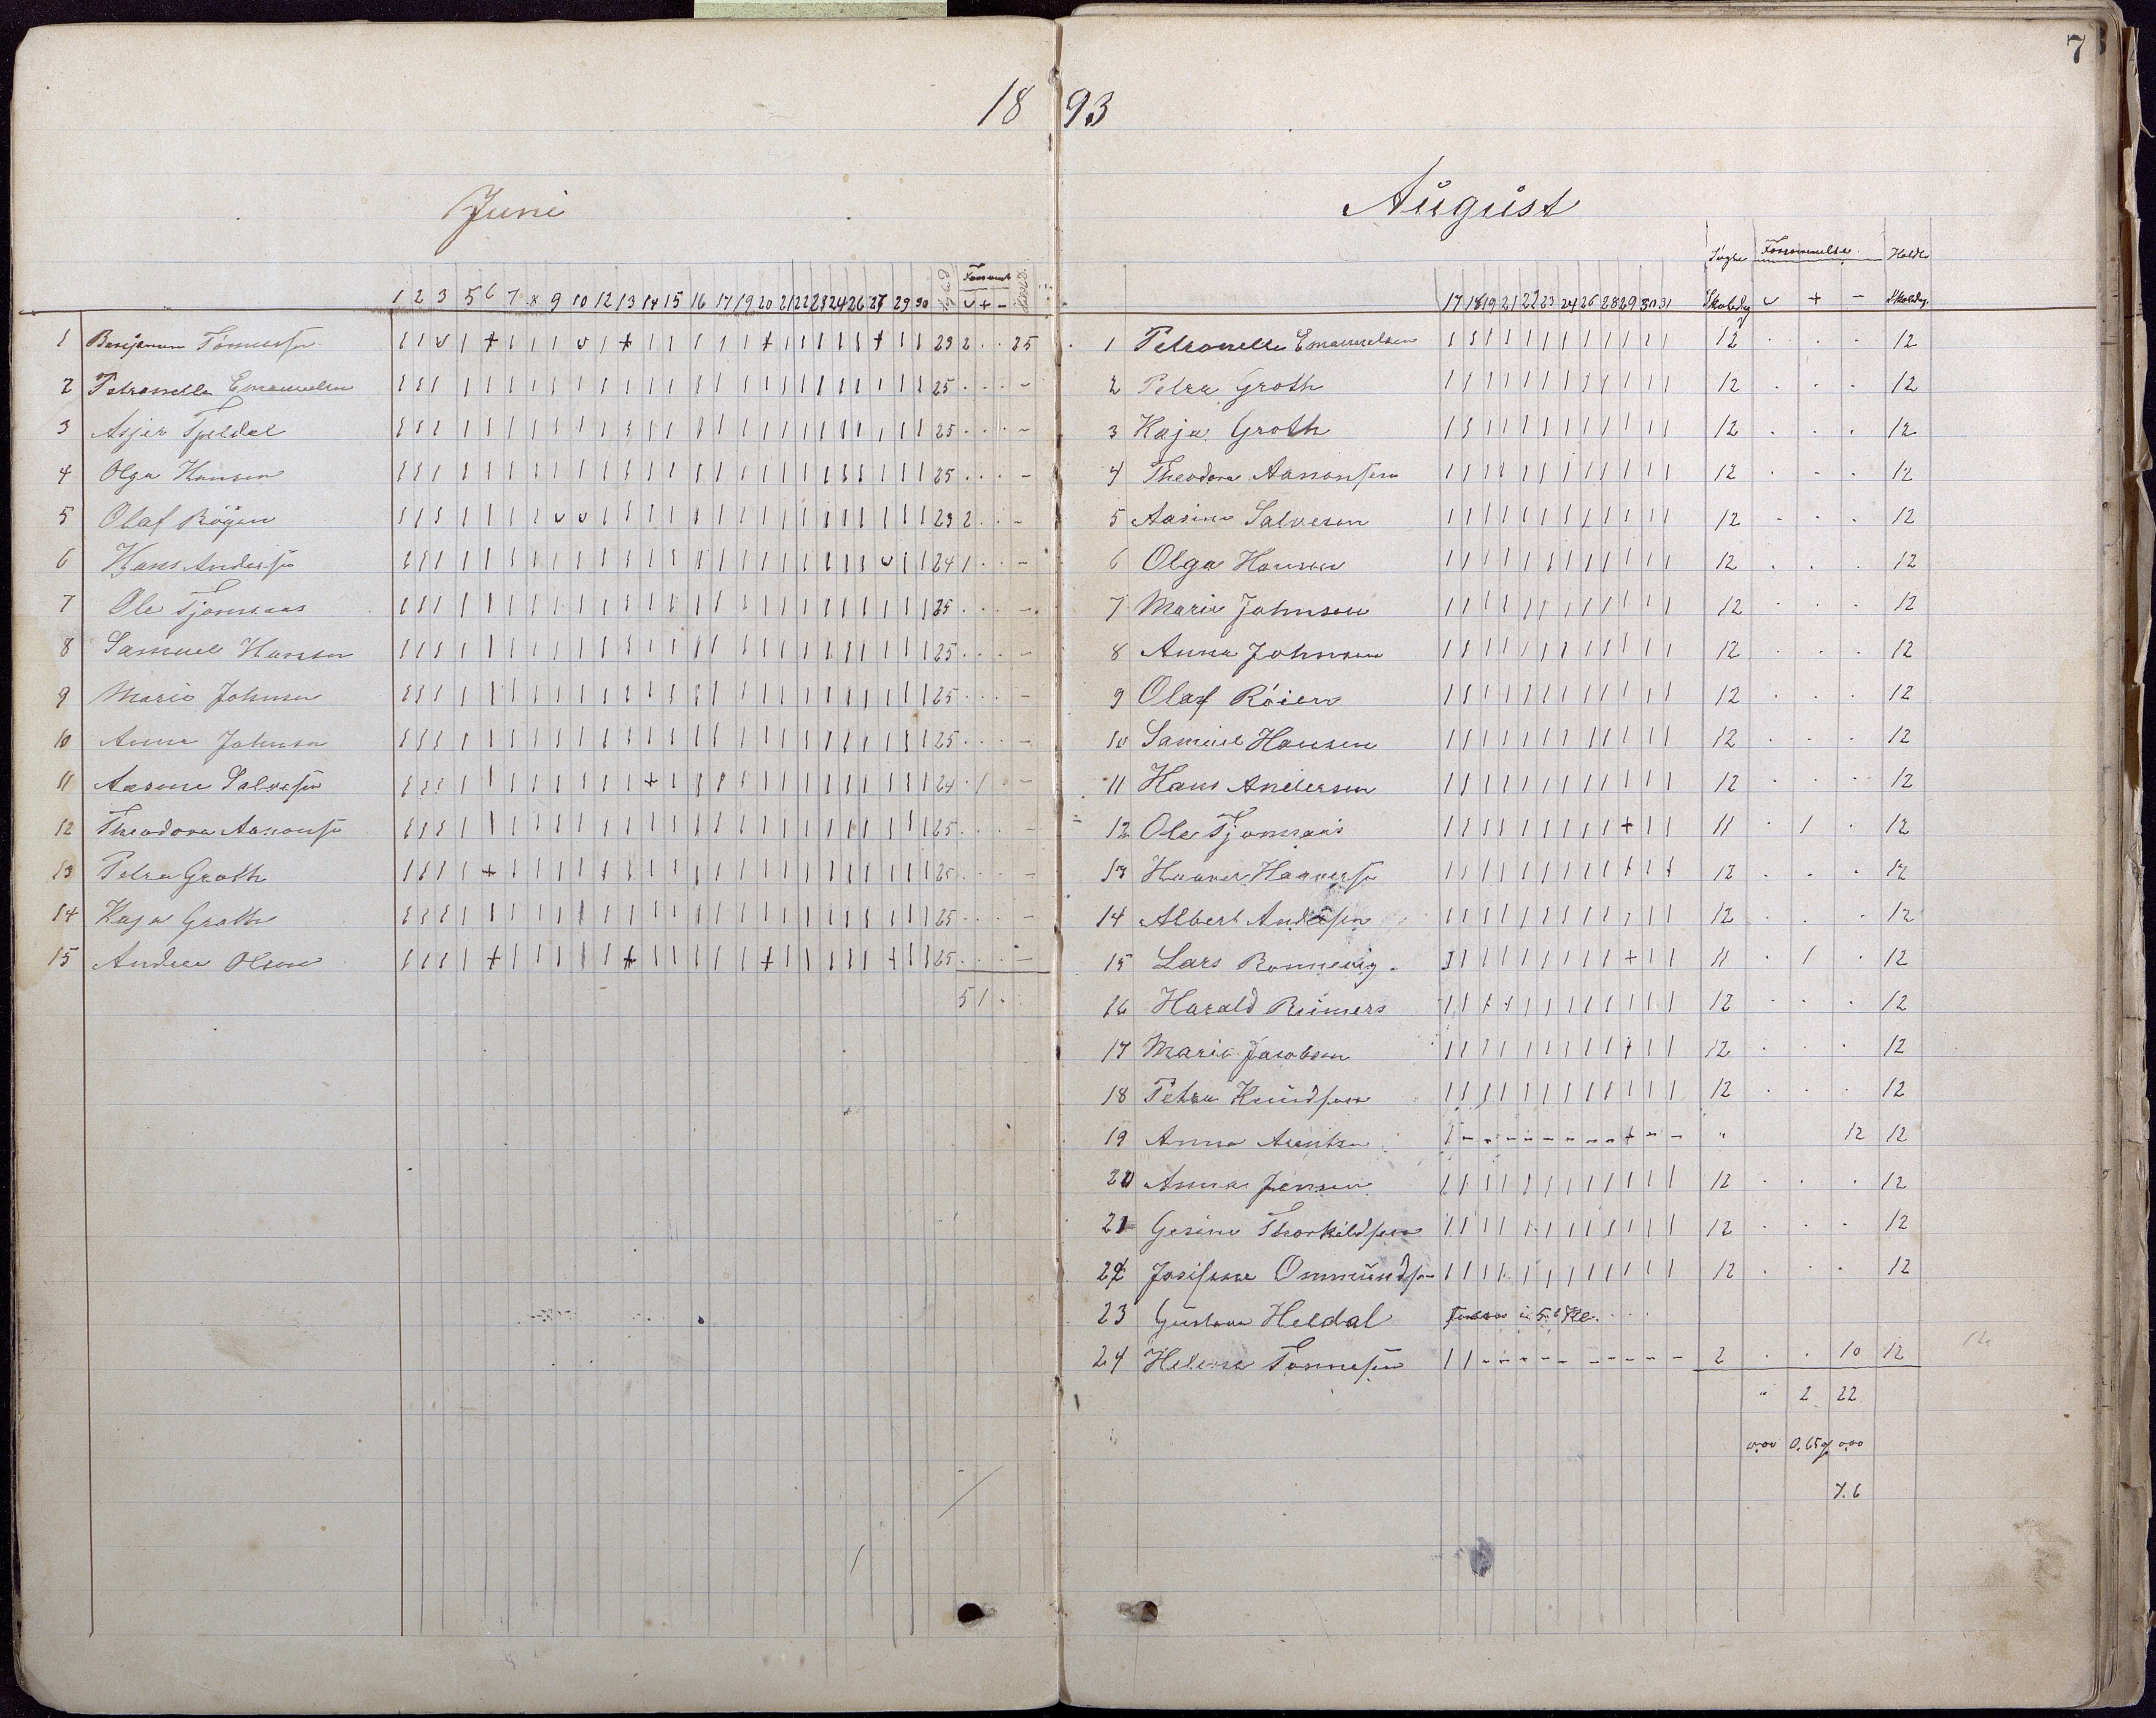 7
18 93
Juni
Forsømt
1 2 3 5 6 7 8 9 10 12 13 14 15 16 17 19 20 21 22 23 24 26 27 29 30 v + -
1 Benjamin Tønnessen 23 2 . . 25
2 Petronella Emanuelsen 25 . . . -
3 Asjer 25 . . . -
4 Olga Hansen 25 . . . -
5 Olaf Röyen 23 2 . . -
6 Hans Andersen 24 1 . . -
7 Ole Tjomsaas 25 . . . -
8 Samuel Hansen 25 . . . -
9 Marie Johnsen 25 . . . -
10 Anna Johnsen 25 . . . -
11 Aasine Salvesen 24 . 1 . -
12 Theodora Aanonsen 25 . . . -
13 Petra Groth 25 . . . -
14 Kaja Groth 25 . . . -
15 Andrea Olsen 25 . . . -
5 1 .
August
Søgte Forsømmelse Holdte
17 18 19 21 22 23 24 26 28 29 30 31 Skoledg v + - Skoledg.
1 Petronelle Emanuelsen 12 . . . 12
2 Petra Groth 12 . . . 12
3 Kaja Groth 12 . . . 12
4 Theodora Aanonsen 12 . . . 12
5 Aasine Salvesen 12 . . . 12
6 Olga Hansen 12 . . . 12
7 Marie Johnsen 12 . . . 12
8 Anna Johnsen 12 . . . 12
9 Olaf Röien 12 . . . 12
10 Samuel Hansen 12 . . . 12
11 Hans Andersen 12 . . . 12
12 Ole Tjomsaas + 11 . 1 . 12
13 Haaver Haaversen 12 . . . 12
14 Albert Andersen 12 . . . 12
15 Lars Ronnevig + 11 . 1 . 12
16 Harald Reimers 12 . . . 12
17 Marie Jacobsen 12 . . . 12
18 Petra Knudsen 12 . . . 12
19 Anna 1 - - - - - - - - + - - " 12 12
20 Anna Jensen 12 . . . 12
21 Gesine Thorkildsen 12 . . . 12
22 Josefine Ommundsen 12 . . . 12
23 Gustava Heldal i 5te Kl.
24 Helene Tønnesen 1 1 - - - - - - - - - - 2 . . 10 12
" 2 22
0,00 0,65
7.6